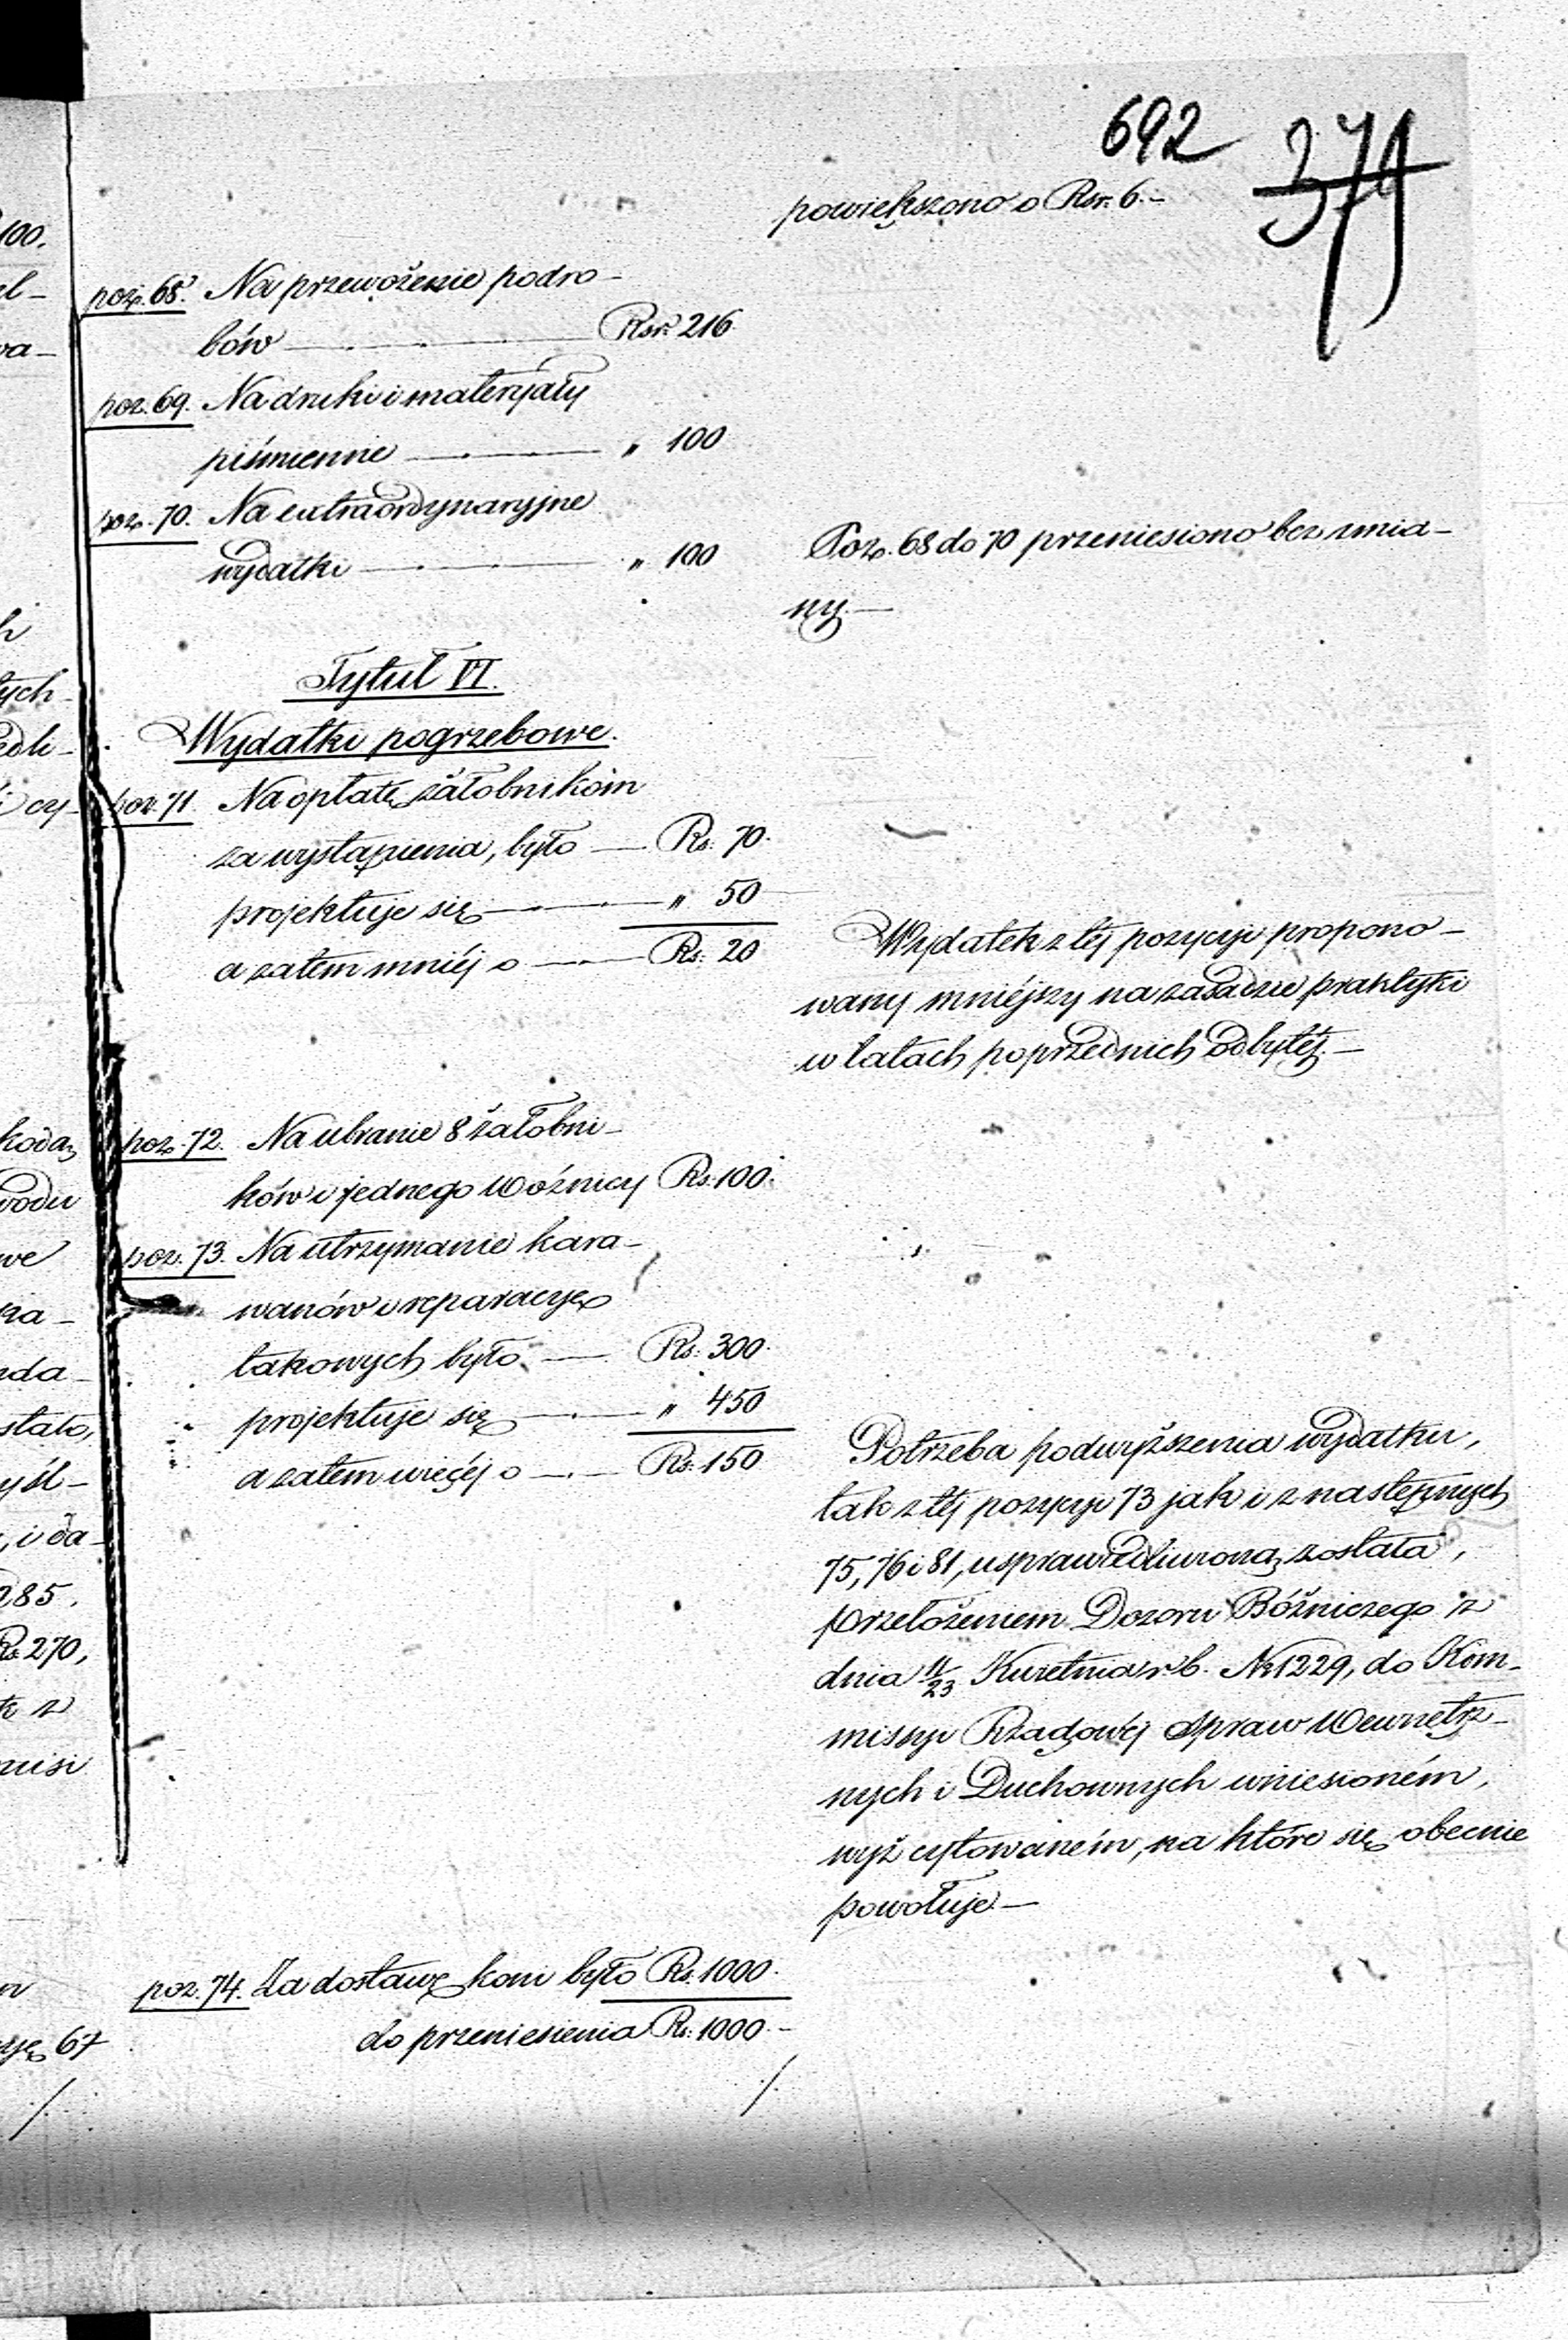 692 379
powiększono o Rsr. 6.-
poz. 68. Na przewożenie podro-
bów Rsr. 216
poz. 69. Na druki i materyały
piśmienne " 100
poz. 70. Na extraordynaryjne
wydatki " 100
Poz. 68 do 70 przeniesiono bez zmia-
ny.-
Tytuł VI.
Wydatki pogrzebowe.
poz. 71 Na opłatę żałobnikom
za wystąpienia, było Rs. 70.
projektuje się " 50
a zatem mniéj o Rs. 20
Wydatek z téj pozycyi propono-
wany mniéjszy na zasadzie praktyki
w latach poprzednich odbytéj.-
poz. 72. Na ubranie 8 żałobni-
ków i jednego woźnicy Rs. 100.
poz. 73. Na utrzymanie kara-
wanów i reparacyę
takowych było Rs. 300.
projektuje się " 450
a zatem więcéj o Rs. 150
Potrzeba podwyższenia wydatku,
tak z téj pozycyi 73 jak i z następnych
75, 76 i 81, usprawiedliwioną została,
przełożeniem Dozoru Bóżniczego z
dnia 11/23 Kwietnia r. b. Nr 1229, do Kom-
missyi Rządowéj Spraw Wewnętrz-
nych i Duchownych wniesioném,
wyż cytowaném, na które się obecnie
powołuje.-
poz. 74. Za dostawę koni było Rs. 1000.
do przeniesienia Rs. 1000.-
100.
tych
kodą
wodu
we
stało,
yśl-
, i da-
285.
Rs. 270,
67